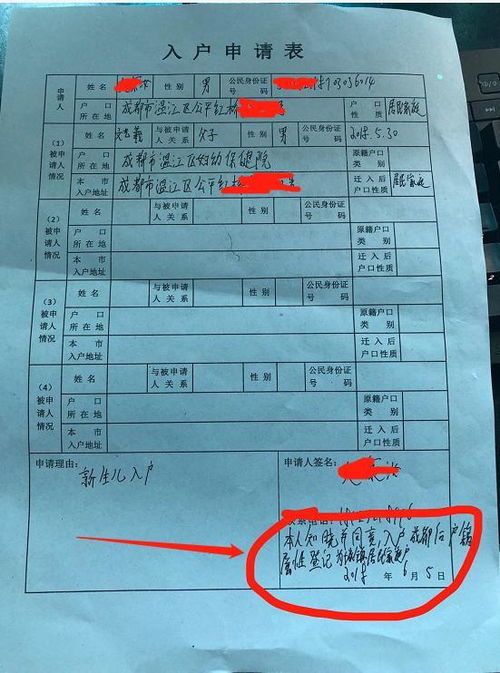 入户申请表
申请人 姓名 性别 男 公民身份证号码
户口所在地 成都市温江区公平红桥 户口性质 居民家庭
(1)被申请人情况 姓名 与被申请人关系 父子 性别 男 公民身份证号码 5.30
户口所在地 成都市温江区妇幼保健院 原籍户口类别
本市入户地址 成都市温江区公平红桥 迁入后户口性质 居民家庭
(2)被申请人情况 姓名 与被申请人关系 性别 公民身份证号码
户口所在地 原籍户口类别
本市入户地址 迁入后户口性质
(3)被申请人情况 姓名 与被申请人关系 性别 公民身份证号码
户口所在地 原籍户口类别
本市入户地址 迁入后户口性质
(4)被申请人情况 姓名 与被申请人关系 性别 公民身份证号码
户口所在地 原籍户口类别
本市入户地址 迁入后户口性质
申请理由:
新生儿入户
申请人签名:
联系电话:
本人知晓并同意,入户成都后户籍
属性登记为城镇居民家庭户
年 6 月 5 日